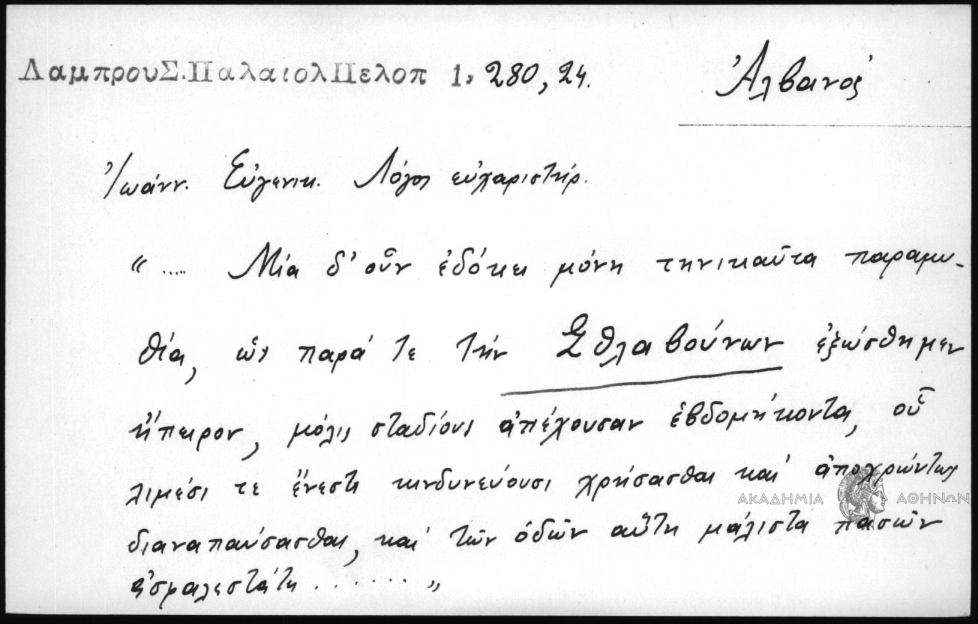 ΛαμπρουΣ.ΠαλαιολΠελοπ 1, 280, 24.
Ἀλβανός
Ἰωάνν. Εὐγενικ. Λόγος εὐχαριστήρ.
"..... Μία δ' οὖν ἐδόκει μόνη τηνικαῦτα παραμυ-
θία, ὡς παρά τε τήν Σθλαβούνων ἐξώσθημεν
ἤπειρον, μόλις σταδίους ἀπέχουσαν ἑβδομήκοντα, οὗ
λιμέσι τε ἔνεστι κινδυνεύουσι χρήσασθαι καί ἀποχρώντως
διαναπαύσασθαι, καί τῶν ὁδῶν αὕτη μάλιστα πασῶν
ἀσφαλεστάτη ....... "
ΑΚΑΔΗΜΙΑ ΑΘΗΝΩΝ